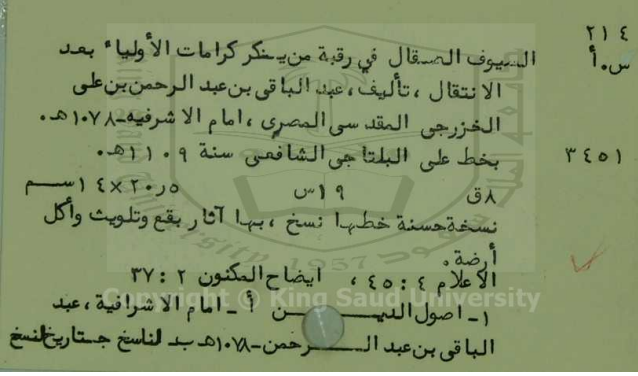 ٢١٤
س.أ
السيوف الصقال في رقبة من ينكر كرامات الأولياء بعد
الانتقال ، تأليف ، عبد الباقى بن عبد الرحمن بن على
الخزرجى المقدسى المصرى ، امام الاشرفيه-١٠٧٨هـ.
بخط على البلتاجى الشافعى سنة ١١٠٩هـ.
٣٤٥١
٨ق ١٩س ٢٠٫٥×١٤سم
نسخة حسنة خطها نسخ ، بها آثار بقع وتلويث وأكل
أرضة.
الاعلام ٤ : ٤٥ ، ايضاح المكنون ٢ : ٣٧
Copyright © King Saud University
١- اصول الديـــن أ- امام الاشرافية ، عبد
الباقى بن عبد الـــرحمن-١٠٧٨هـ ب- لناسخ جـ تاريخ لنسخ
1957
University